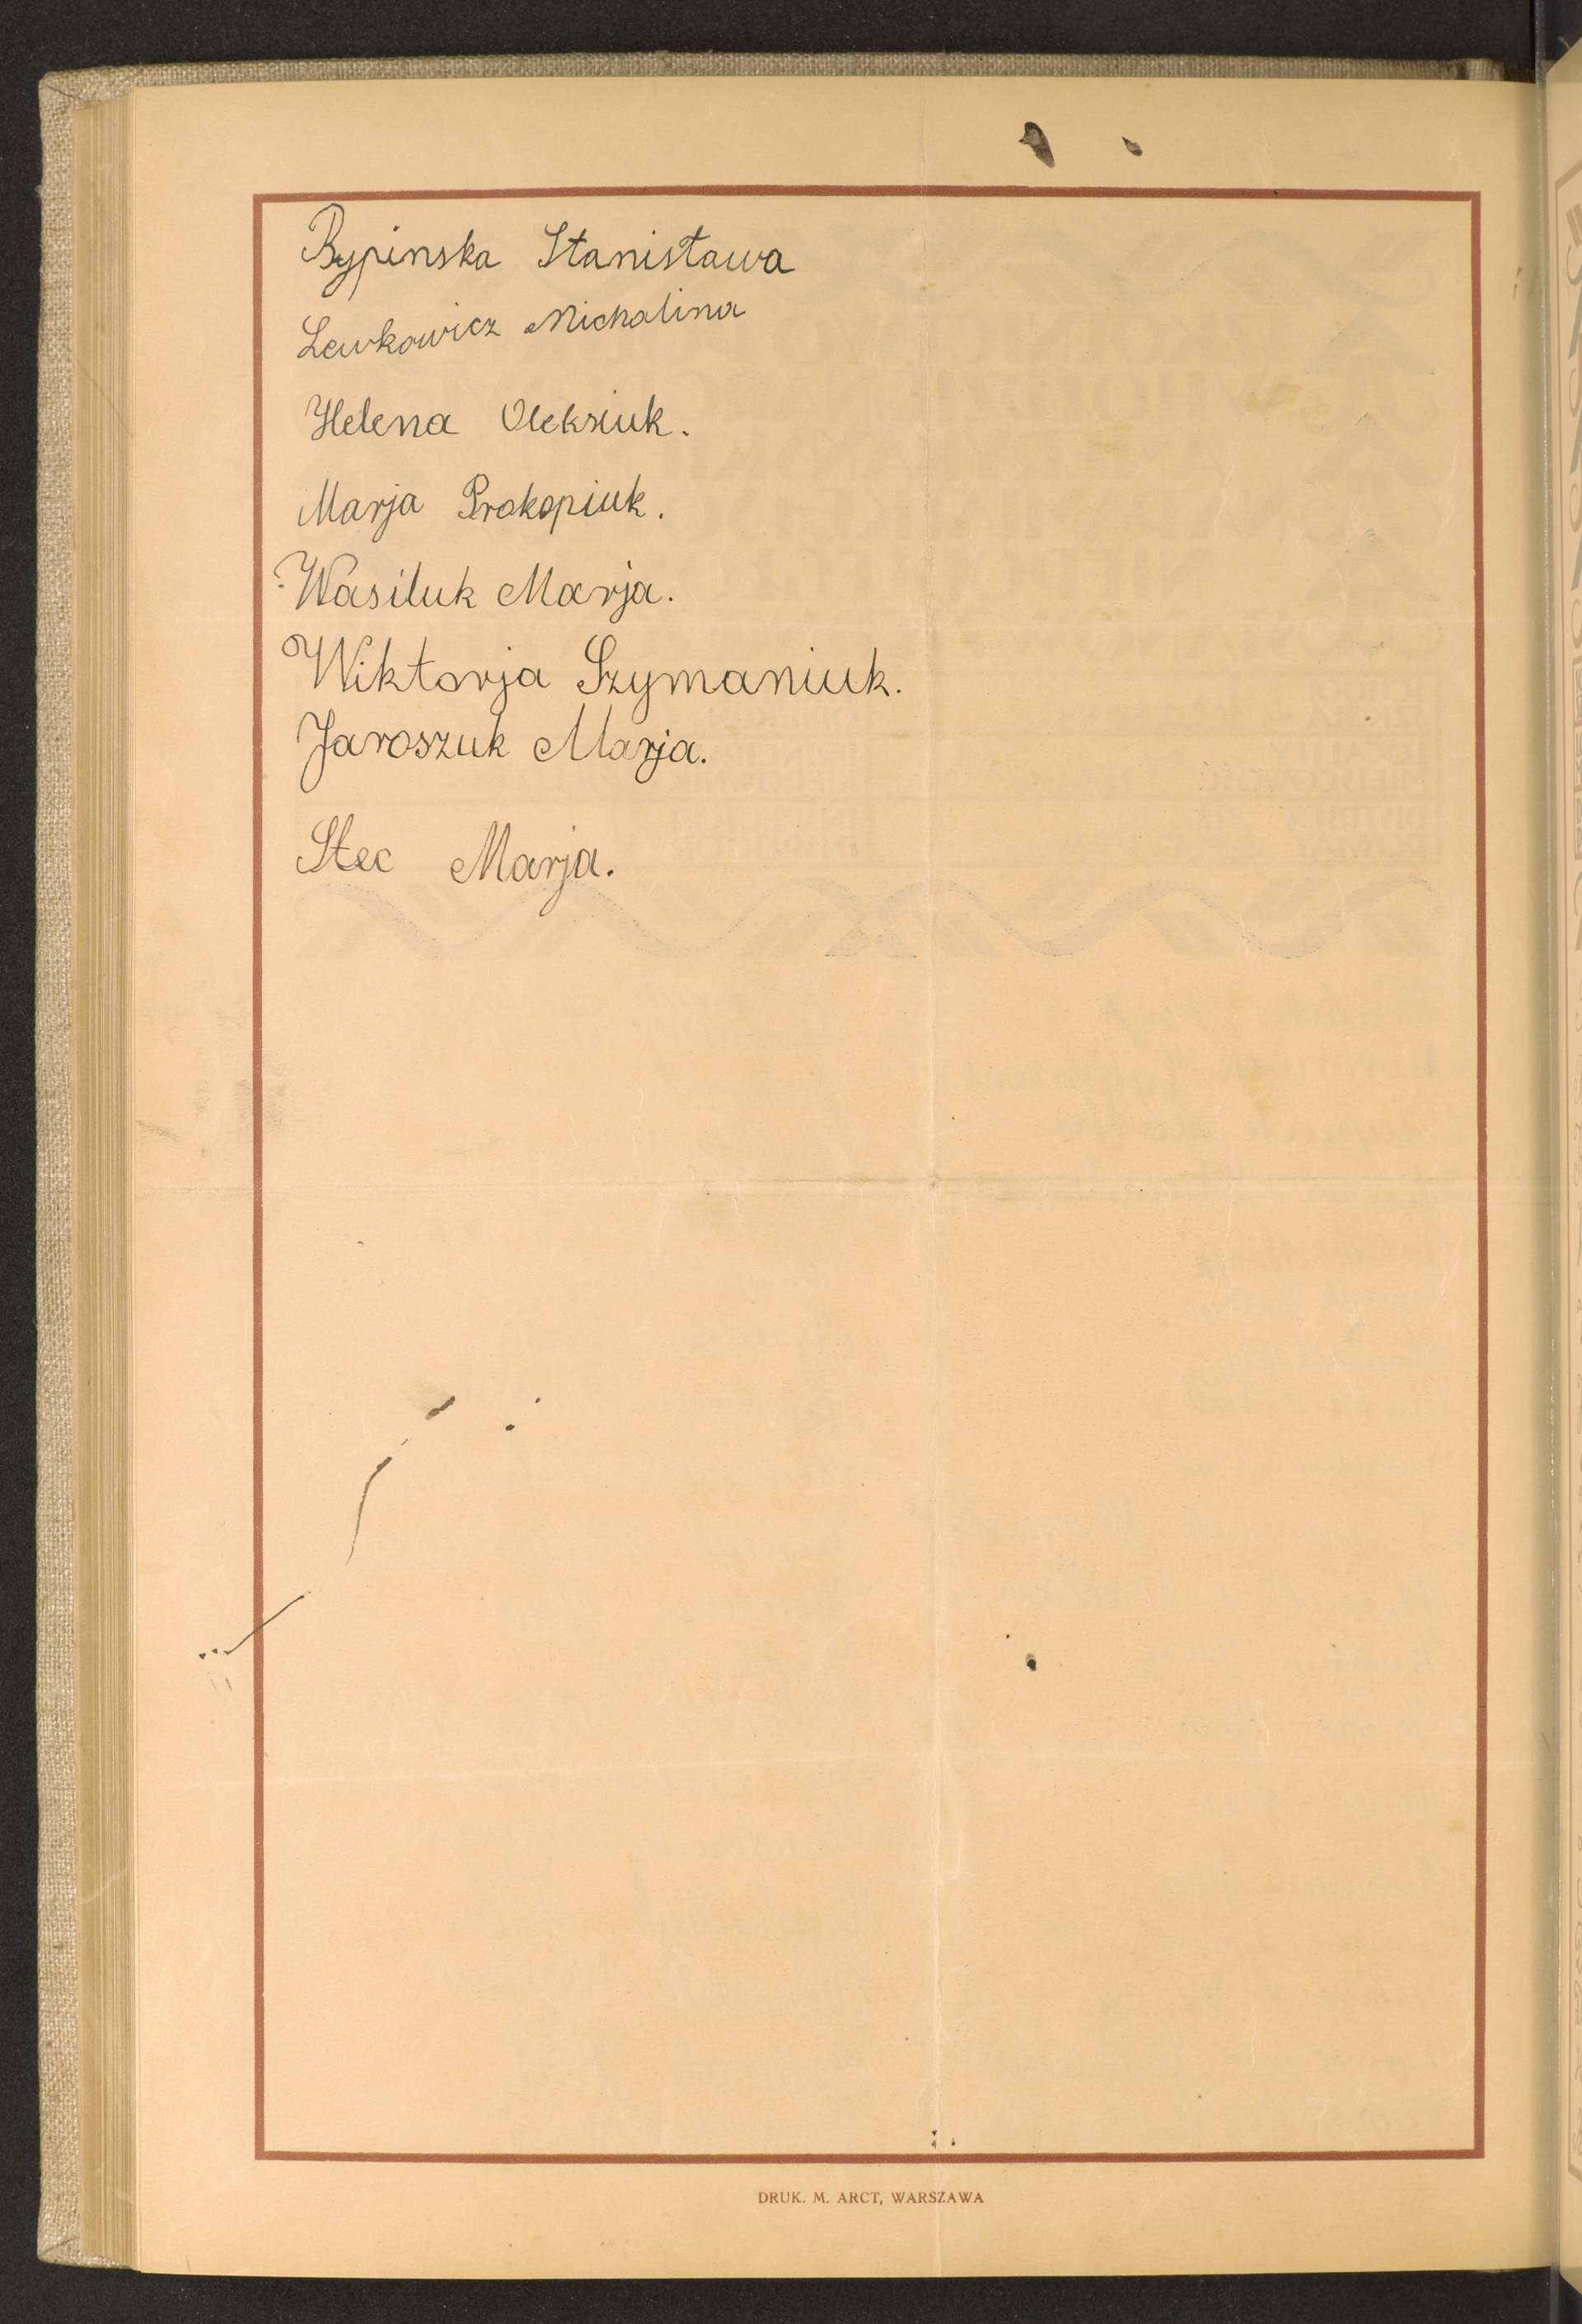 Bypinska Stanisława
Lewkowicz Michalina
Helena Oleksiuk.
Marja Prokopiuk.
Wasiluk Marja.
Wiktorja Szymaniuk.
Jaroszuk Marja.
Stec Marja.
DRUK. M. ARCT, WARSZAWA